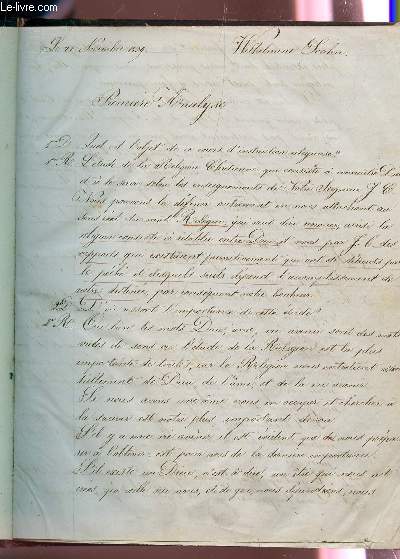 Le-Livre.com
Le 21 Novembre 1839.
Première Analyse
1ère D. Quel est l'objet de ce cours d'instruction religieuse?
1ère R. L'étude de la Religion Chrétienne qui consiste à connaître Dieu
et à le servir selon les enseignements de Notre Seigneur J. C.
Nous pouvons la définir autrement en nous attachant au
sens réel du mot Religion qui veut dire renouer, ainsi la
religion consiste à rétablir entre Dieu et nous par J. C. des
rapports qui existaient primitivement qui ont été détruits par
le péché et desquels seuls dépend l'accomplissement de
notre destinée, par conséquent notre bonheur.
D. D'où ressort l'importance de cette étude?
R. Que bien les mots Dieu, âme, un avenir sont des mots
vides de sens ou l'étude de la Religion est la plus
importante de toutes, car la Religion nous entretient
de Dieu, de l'âme, et de la vie à venir.
Si nous avons une âme nous en occuper et chercher à
la sauver est notre plus important devoir.
S'il y a une vie à venir il est évident que de nous prépa-
rer à l'obtenir est pour nous de la dernière importance.
S'il existe un Dieu, c'est à dire, un être qui nous ait
créés, qui veille sur nous, et de qui nous dépendions, nous